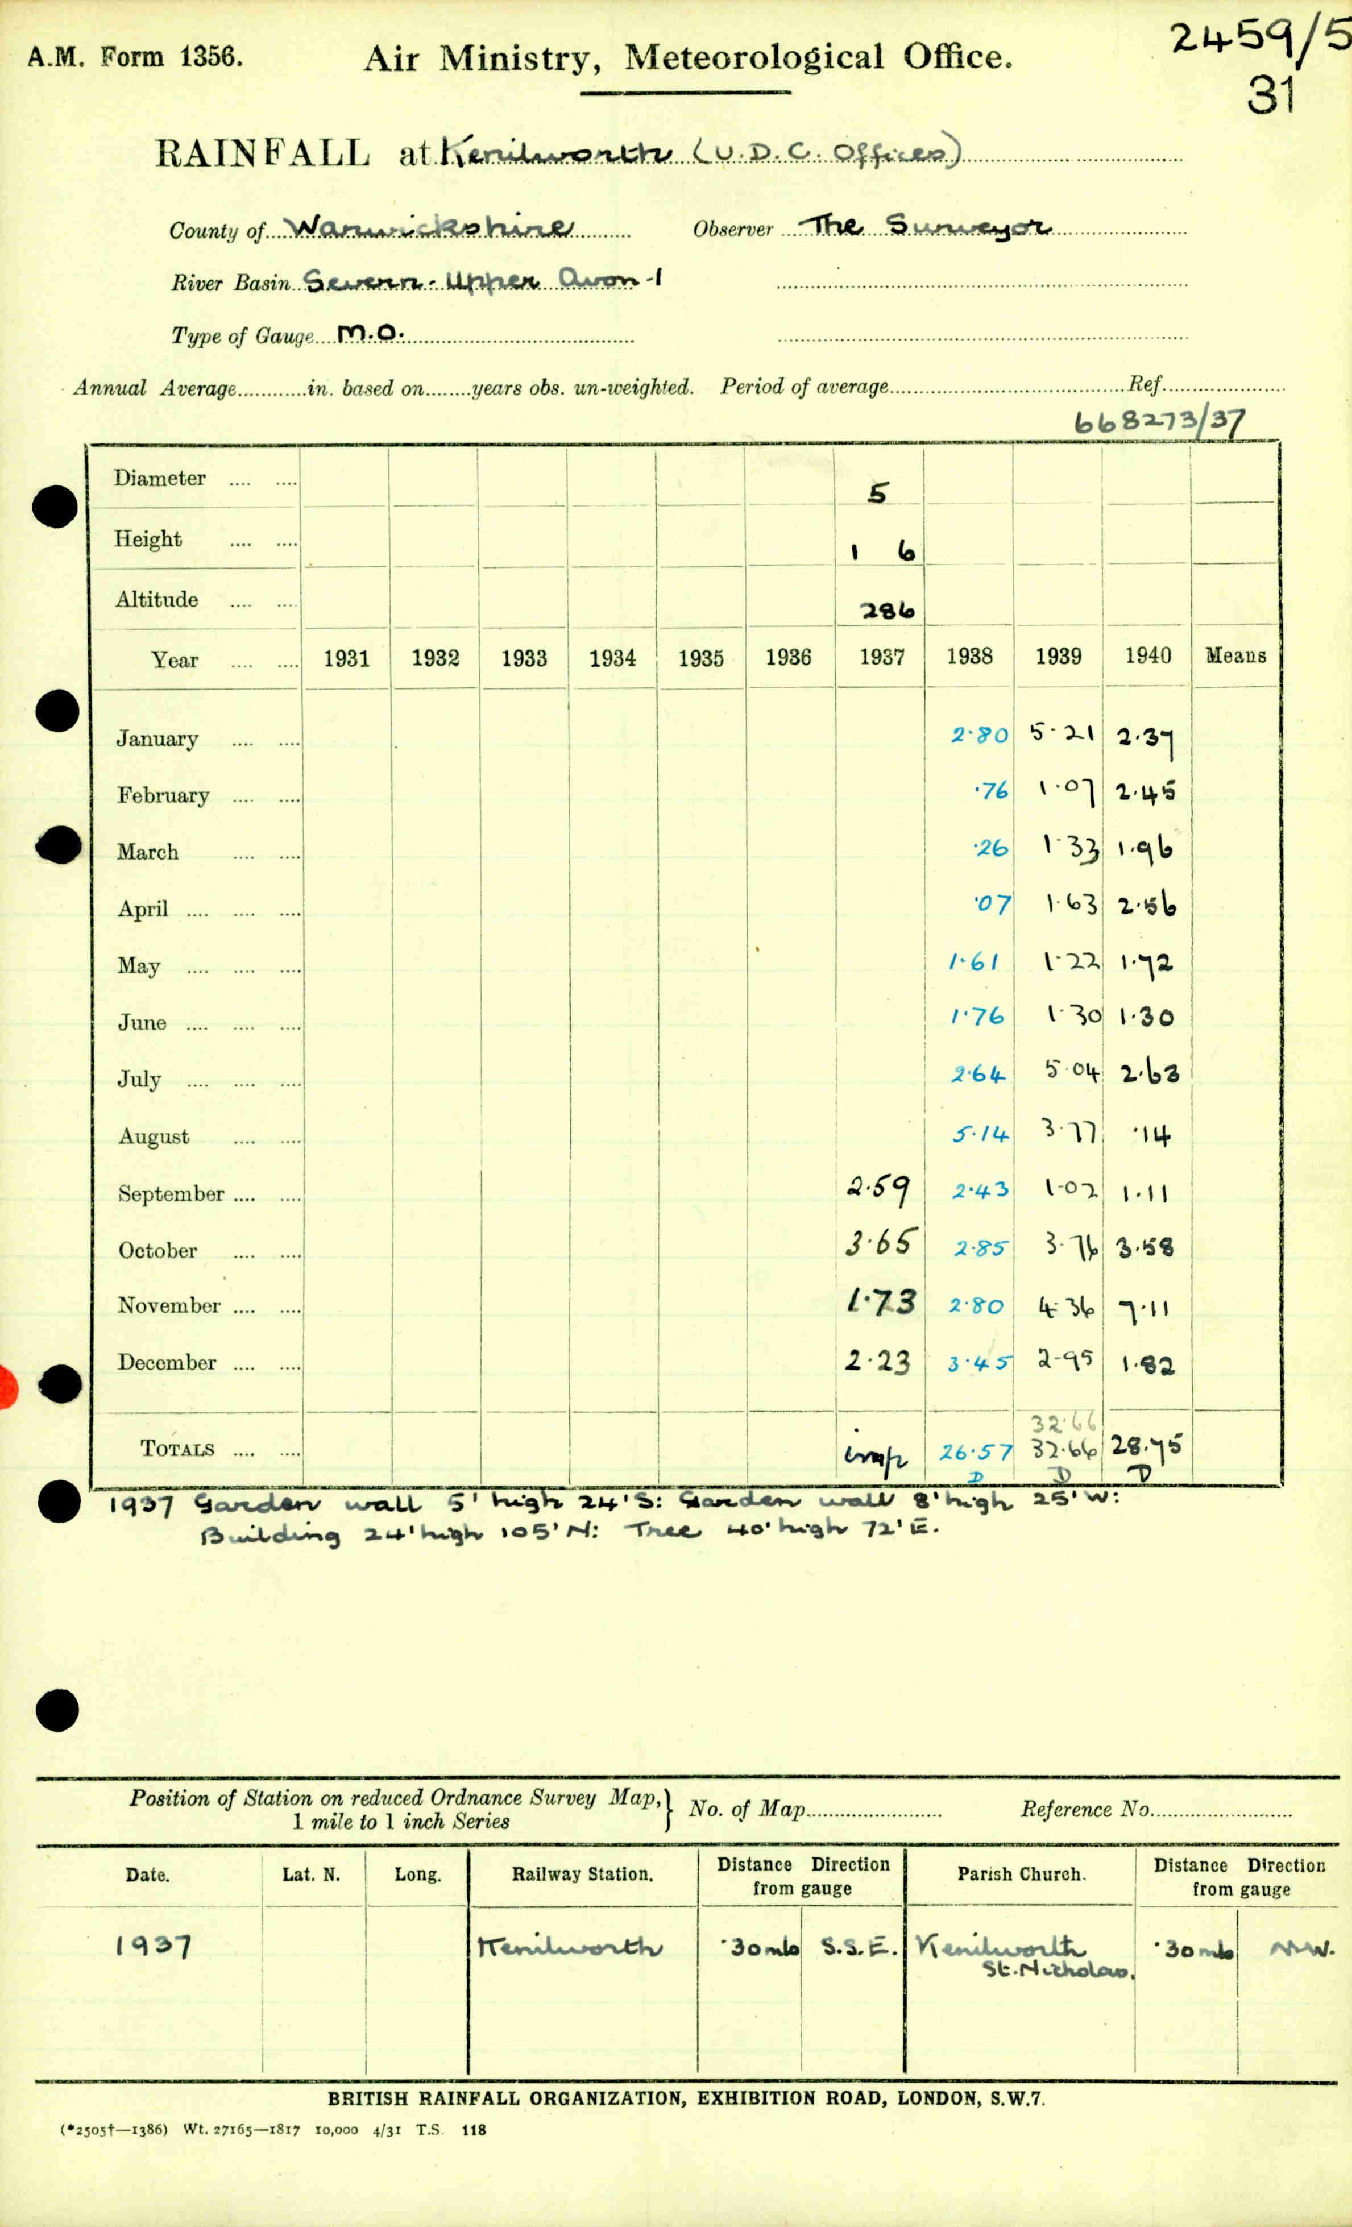 A.M. Form 1356.
Air Ministry, Meteorological Office.
2459/5
31
RAINFALL at Kenilworth (U.D.C. Offices)
County of Warwickshire Observer The Surveyor
River Basin Severn - Upper Avon - 1
Type of Gauge M.O.
Annual Average............in. based on........years obs. un-weighted. Period of average............Ref............
668273/37
Diameter .... .... 5
Height .... .... 1 6
Altitude .... .... 286
Year .... .... 1931 1932 1933 1934 1935 1936 1937 1938 1939 1940 Means
January .... .... 2·80 5·21 2·37
February .... .... ·76 1·07 2·45
March .... .... ·26 1·33 1·96
April .... .... .... ·07 1·63 2·56
May .... .... .... 1·61 1·22 1·72
June .... .... .... 1·76 1·30 1·30
July .... .... .... 2·64 5·04 2·63
August .... .... 5·14 3·77 ·14
September .... .... 2·59 2·43 1·02 1·11
October .... .... 3·65 2·85 3·76 3·58
November .... .... 1·73 2·80 4·36 7·11
December .... .... 2·23 3·45 2·95 1·82
32·66
TOTALS .... .... imp 26·57 32·66 28·75
D D D
1937 Garden wall 5' high 24' S: Garden wall 8' high 25' W:
Building 24' high 105' N: Tree 40' high 72' E.
Position of Station on reduced Ordnance Survey Map,} No. of Map............ Reference No............
1 mile to 1 inch Series
Date. Lat. N. Long. Railway Station. Distance Direction from gauge Parish Church. Distance Direction from gauge
1937 Kenilworth ·30 mls S.S.E. Kenilworth ·30 mls N.W.
St. Nicholas.
BRITISH RAINFALL ORGANIZATION, EXHIBITION ROAD, LONDON, S.W.7.
(*2505†—1386) Wt. 27165—1817 10,000 4/31 T.S. 118